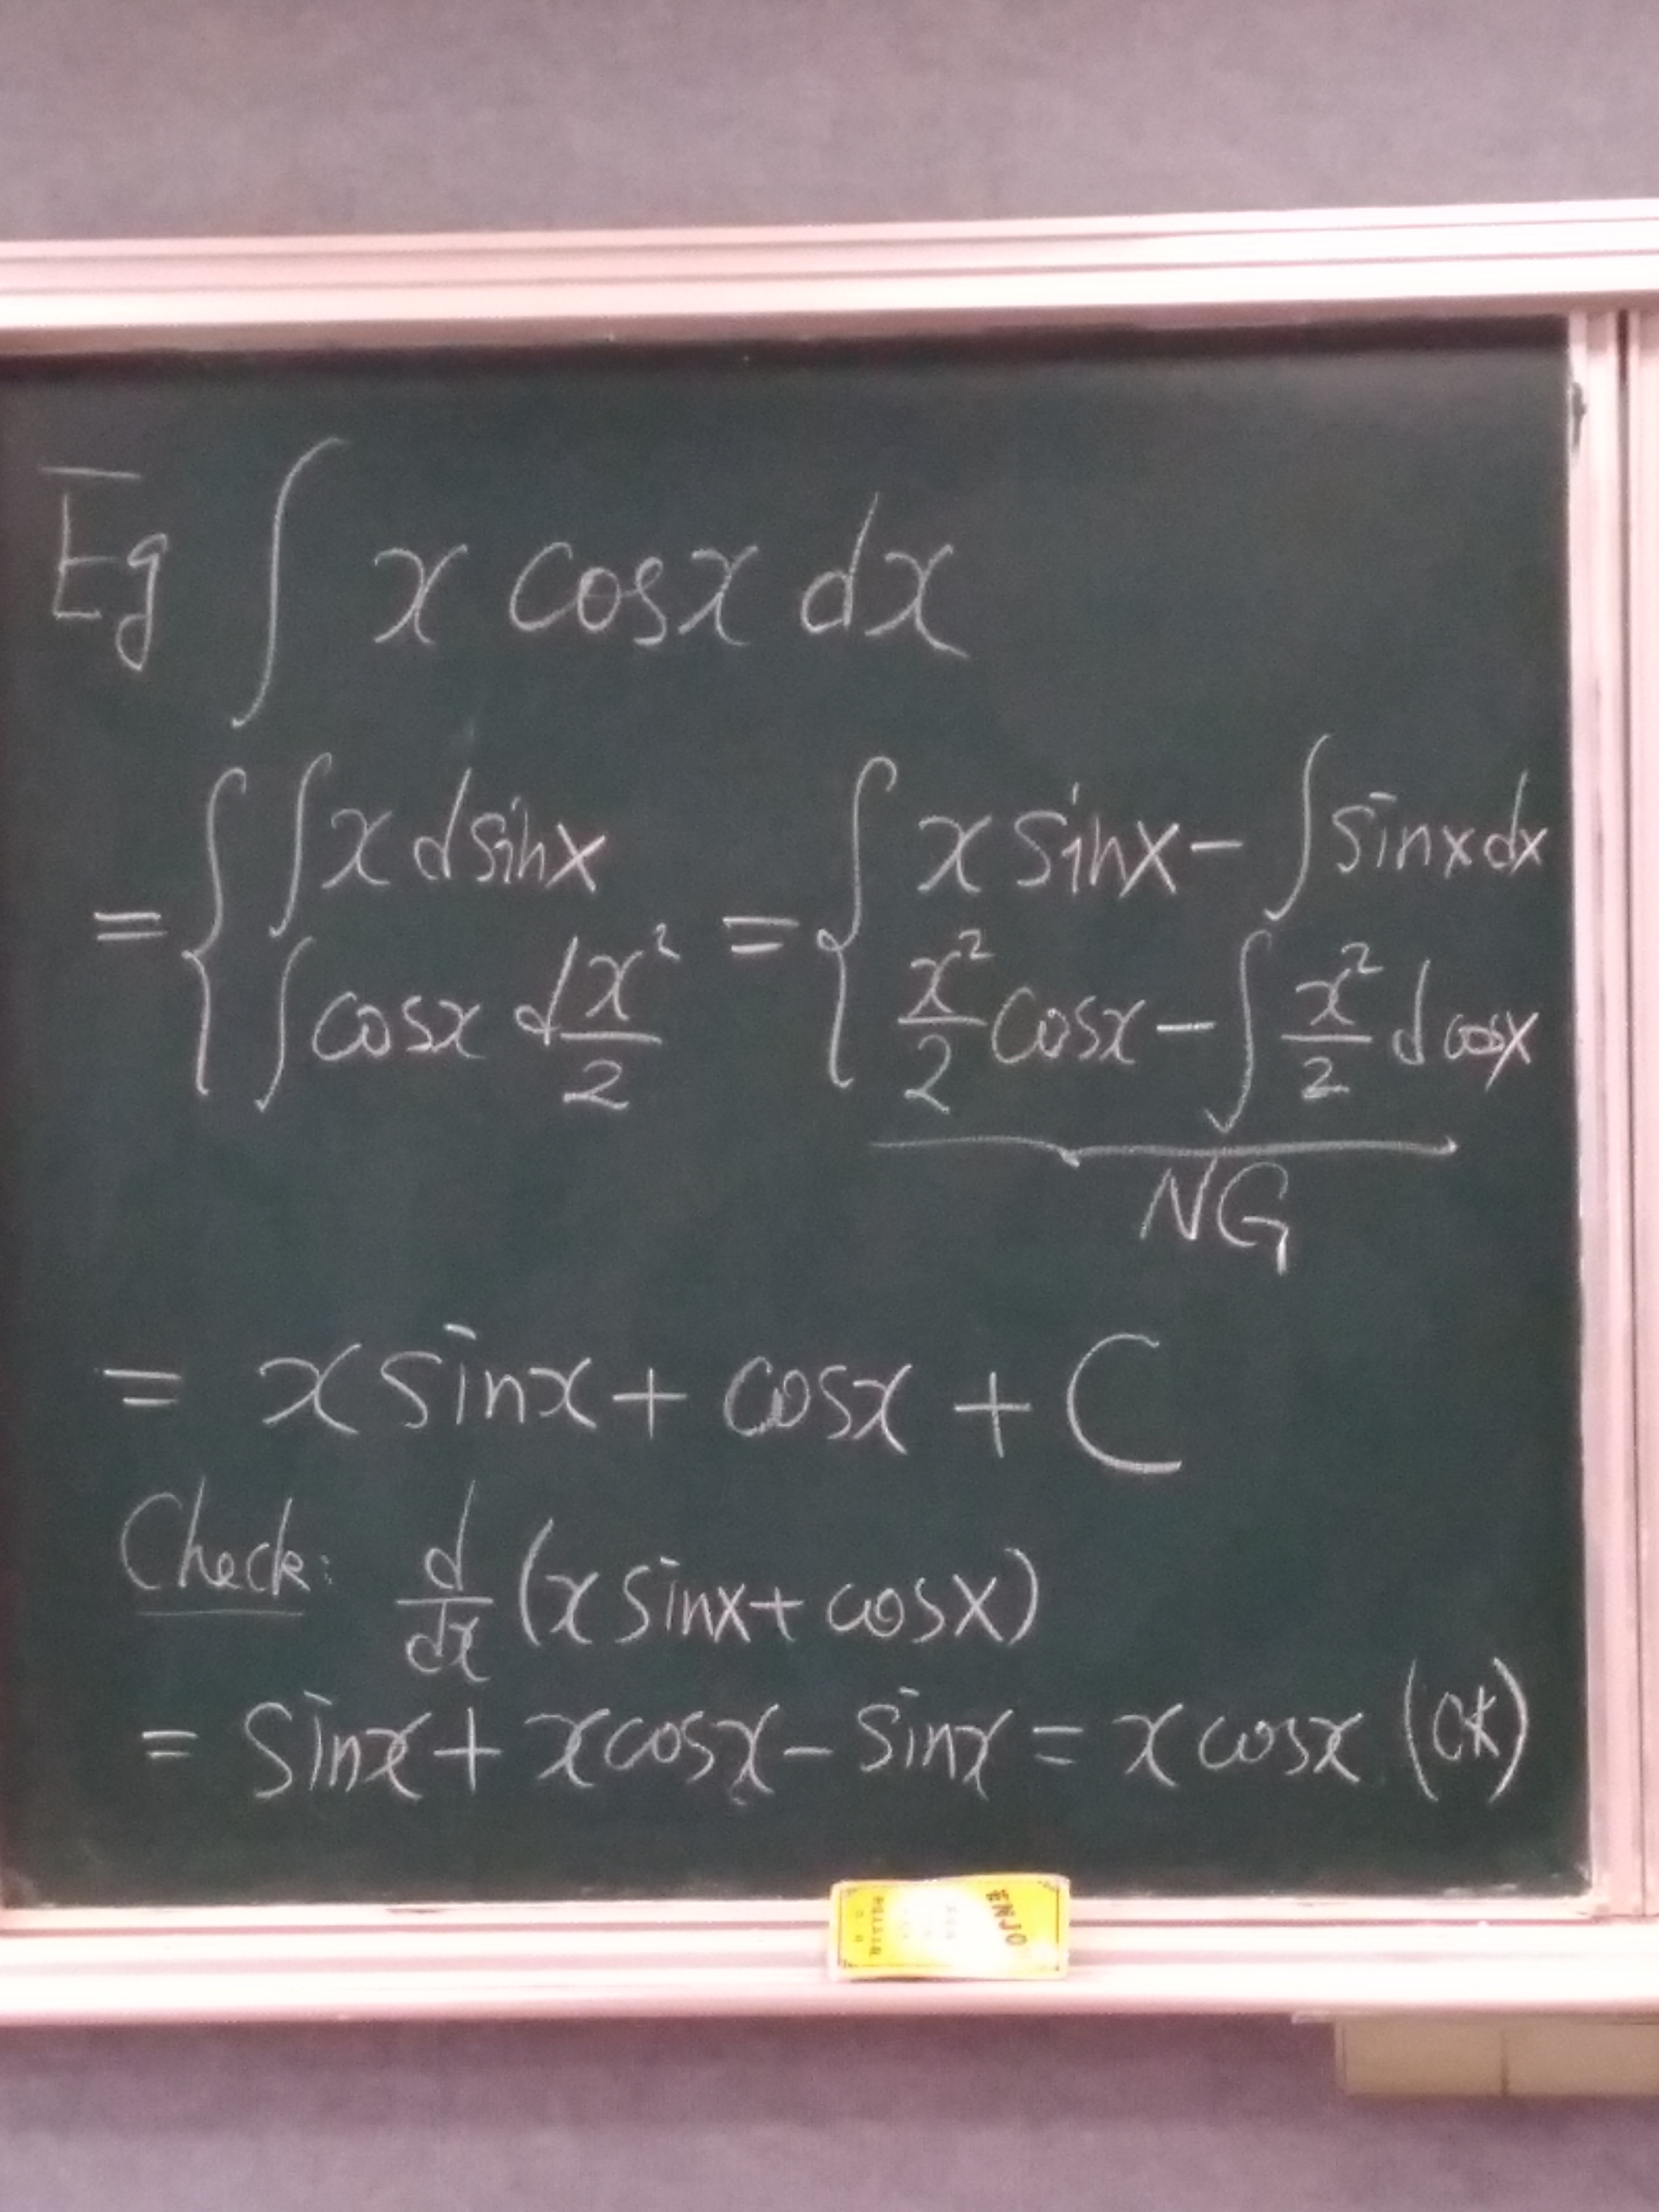 Eg ∫ x cosx dx
= { ∫ x dsinx = { x sinx - ∫ sinx dx
∫ cosx d x²/2 x²/2 cosx - ∫ x²/2 d cosx
NG
= x sinx + cosx + C
Check: d/dx (x sinx + cosx)
= sinx + xcosx - sinx = x cosx (OK)
ENJO